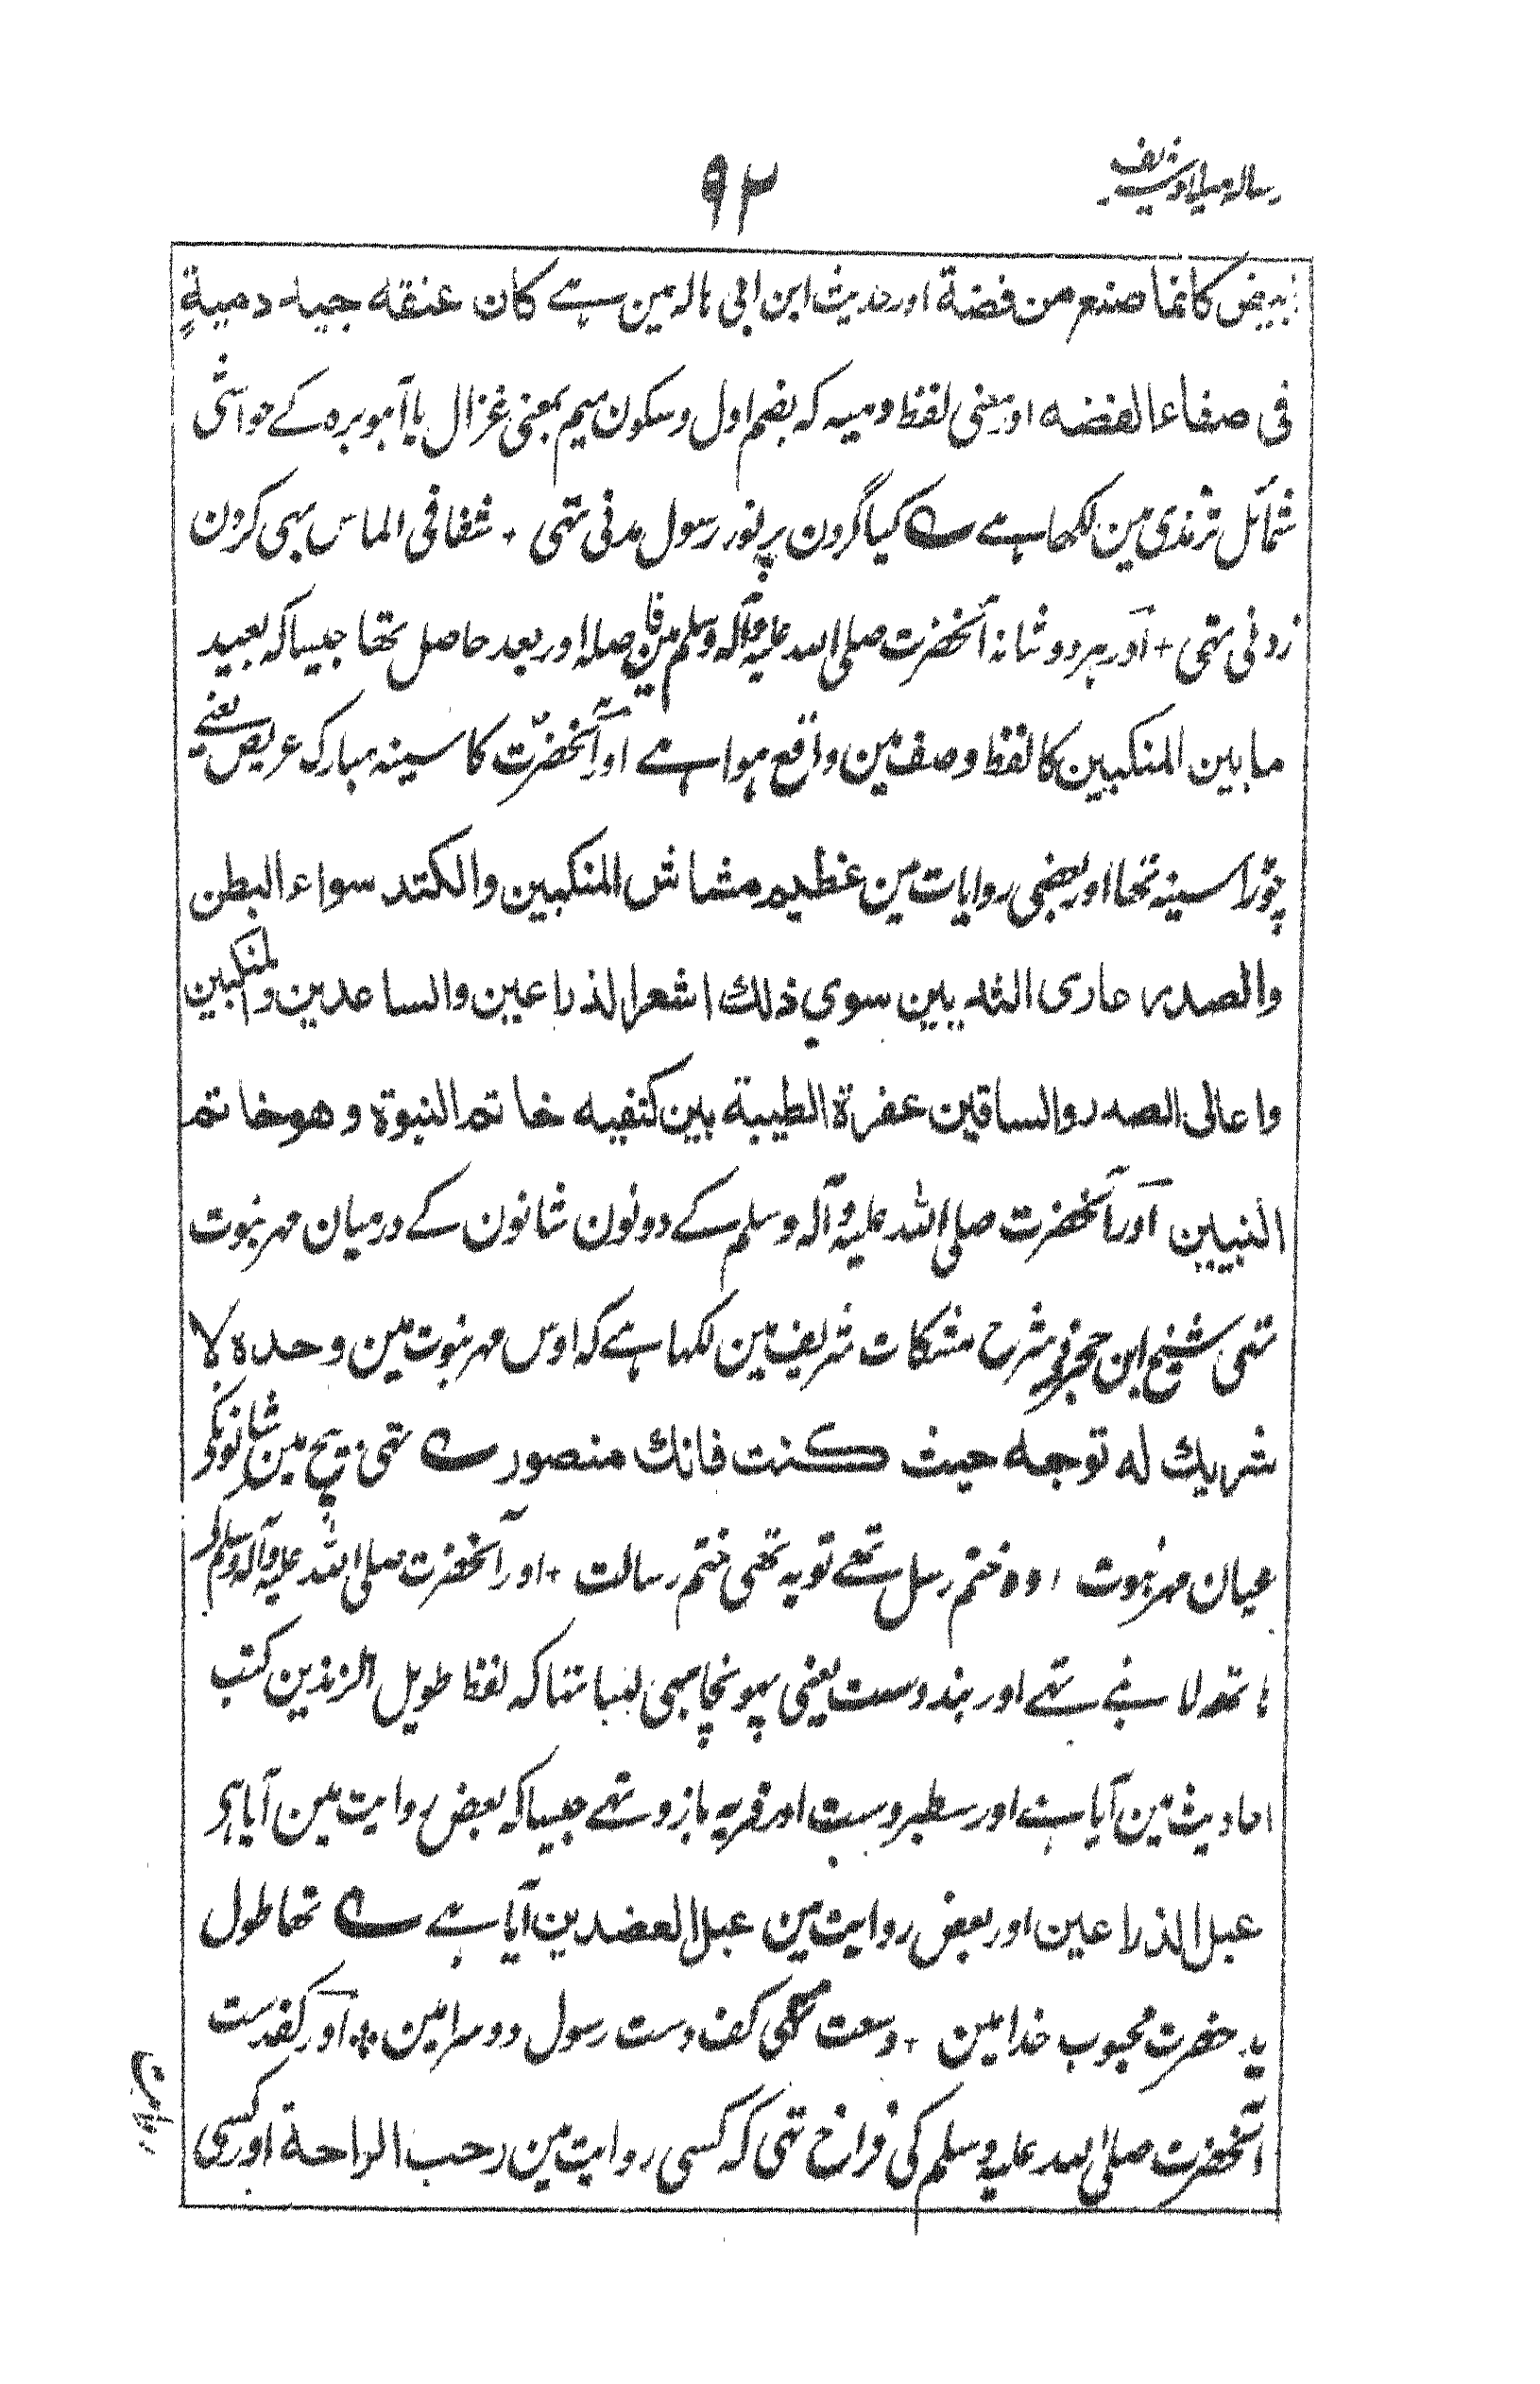 رسالہ میلاد شریف
۹۲
ابیض کانما صنع من فضة اور حدیث ابن ابی ہالہ مین ہے کان عنقه جید دمیةٍ
فی صفاء الفضه اور معنی لفظ دمیہ کہ بضم اول و سکون میم بمعنی غزال یا آہو برہ کے حواشی
شمائل ترمذی مین لکھا ہے ؎ کیا گردن پر نور رسول مدنی تہی ٭ شفافی الماس بہی گردن
زدنی تہی + اور ہر دو شانہ آنخضرت صلی اللہ علیہ وآلہ وسلم مین فاصلہ اور بعد حاصل تھا جیسا کہ بعید
ما بین المنکبین کا لفظ وصف مین واقع ہوا ہے اور آنحضرت کا سینہ مبارک عریض یعنے
چوڑا سینہ تھا اور بعضی روایات مین عظیم مشاش المنکبین والکتد سواء البطن
والصدر عاری الثدیین سوی ذلك اشعر الذراعین والساعدین والمنکبین
واعالی الصدر والساقین عفرة الطیبة بین کتفیه خاتم النبوة وهو خاتم
النبیین اور آنخضرت صلی اللہ علیہ وآلہ وسلم کے دونون شانون کے درمیان مہر نبوت
تہی شیخ ابن حجر نے شرح مشکات شریف مین لکہا ہے کہ اوس مہر نبوت مین وحده لا
شریك له توجه حیث کنت فانك منصور ؎ تہی بیچ مین شانونکے
عیان مہر نبوت ٭ وہ ختم رسل تھے تو یہ تھی ختم رسالت + اور آنخضرت صلی اللہ علیہ وآلہ وسلم کے
ہاتھ لانبے تہے اور بند دست یعنی پہونچا بہی لنبا تہا کہ لفظ طویل الزندین کتب
احادیث مین آیا ہے اور سطبر دست اور فربہ بازو تہے جیسا کہ بعض روایت مین آیا ہی
عبل الذراعین اور بعض روایت مین عبل العضدین آیا ہے ؎ تھا طول
ید حضرت محبوب خدا مین ٭ وسعت تھی کف دست رسول دوسرا مین ٭ اور کفدست
آنخضرت صلی اللہ علیہ وسلم کی فراخ تہی کہ کسی روایت مین رحب الراحة اور کسی